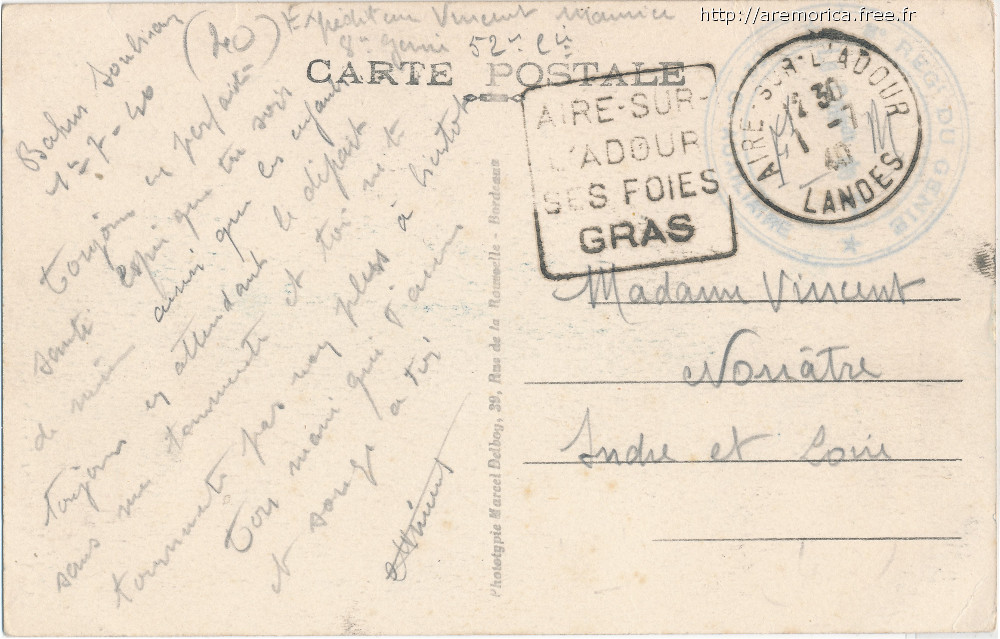 http://aremorica.free.fr
Expéditeur Vincent Maurice
8e génie 52e Cie
(40)
CARTE POSTALE
Bahus Soubiran
1er 7-40
Toujours en parfaite
santé espère que tu sois
de même ainsi que les enfants
toujours en attendant le départ
sans me tourmenter et toi ne te
tourmente pas non plus à bientôt
ton mari qui t'aime
et songe à toi
Vincent
Phototypie Marcel Delboy, 39, Rue de la Rousselle - Bordeaux
AIRE-SUR-
L'ADOUR
SES FOIES
GRAS
AIRE-SUR-L'ADOUR
30
1 - 7
40
LANDES
REGt DU GENIE
Madame Vincent
Nouâtre
Indre et Loire